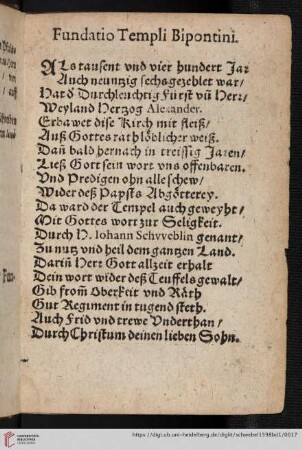 Fundatio Templi Bipontini.
ALs tausent vnd vier hundert Jar
Auch neuntzig sechs gezehlet war/
Hat ð Durchleuchtig Fürst vñ Herr/
Weyland Hertzog Alexander.
Erbawet dise Kirch mit fleiß/
Auß Gottes rath löblicher weiß.
Dañ bald hernach in treissig Jaren/
Ließ Gott sein wort vns offenbaren.
Vnd Predigen ohn alle schew/
Wider deß Papsts Abgötterey.
Da ward der Tempel auch geweyht/
Mit Gottes wort zur Seligkeit.
Durch H. Iohann Schvveblin genant/
Zu nutz vnd heil dem gantzen Land.
Dariñ Herr Gott allzeit erhalt
Dein wort wider deß Teuffels gewalt/
Gib from̃ Oberkeit vnd Räth
Gut Regiment in tugend steth.
Auch Frid vnd trewe Vnderthan/
Durch Christum deinen lieben Sohn.
https://digi.ub.uni-heidelberg.de/diglit/schwebel1598bd1/0017